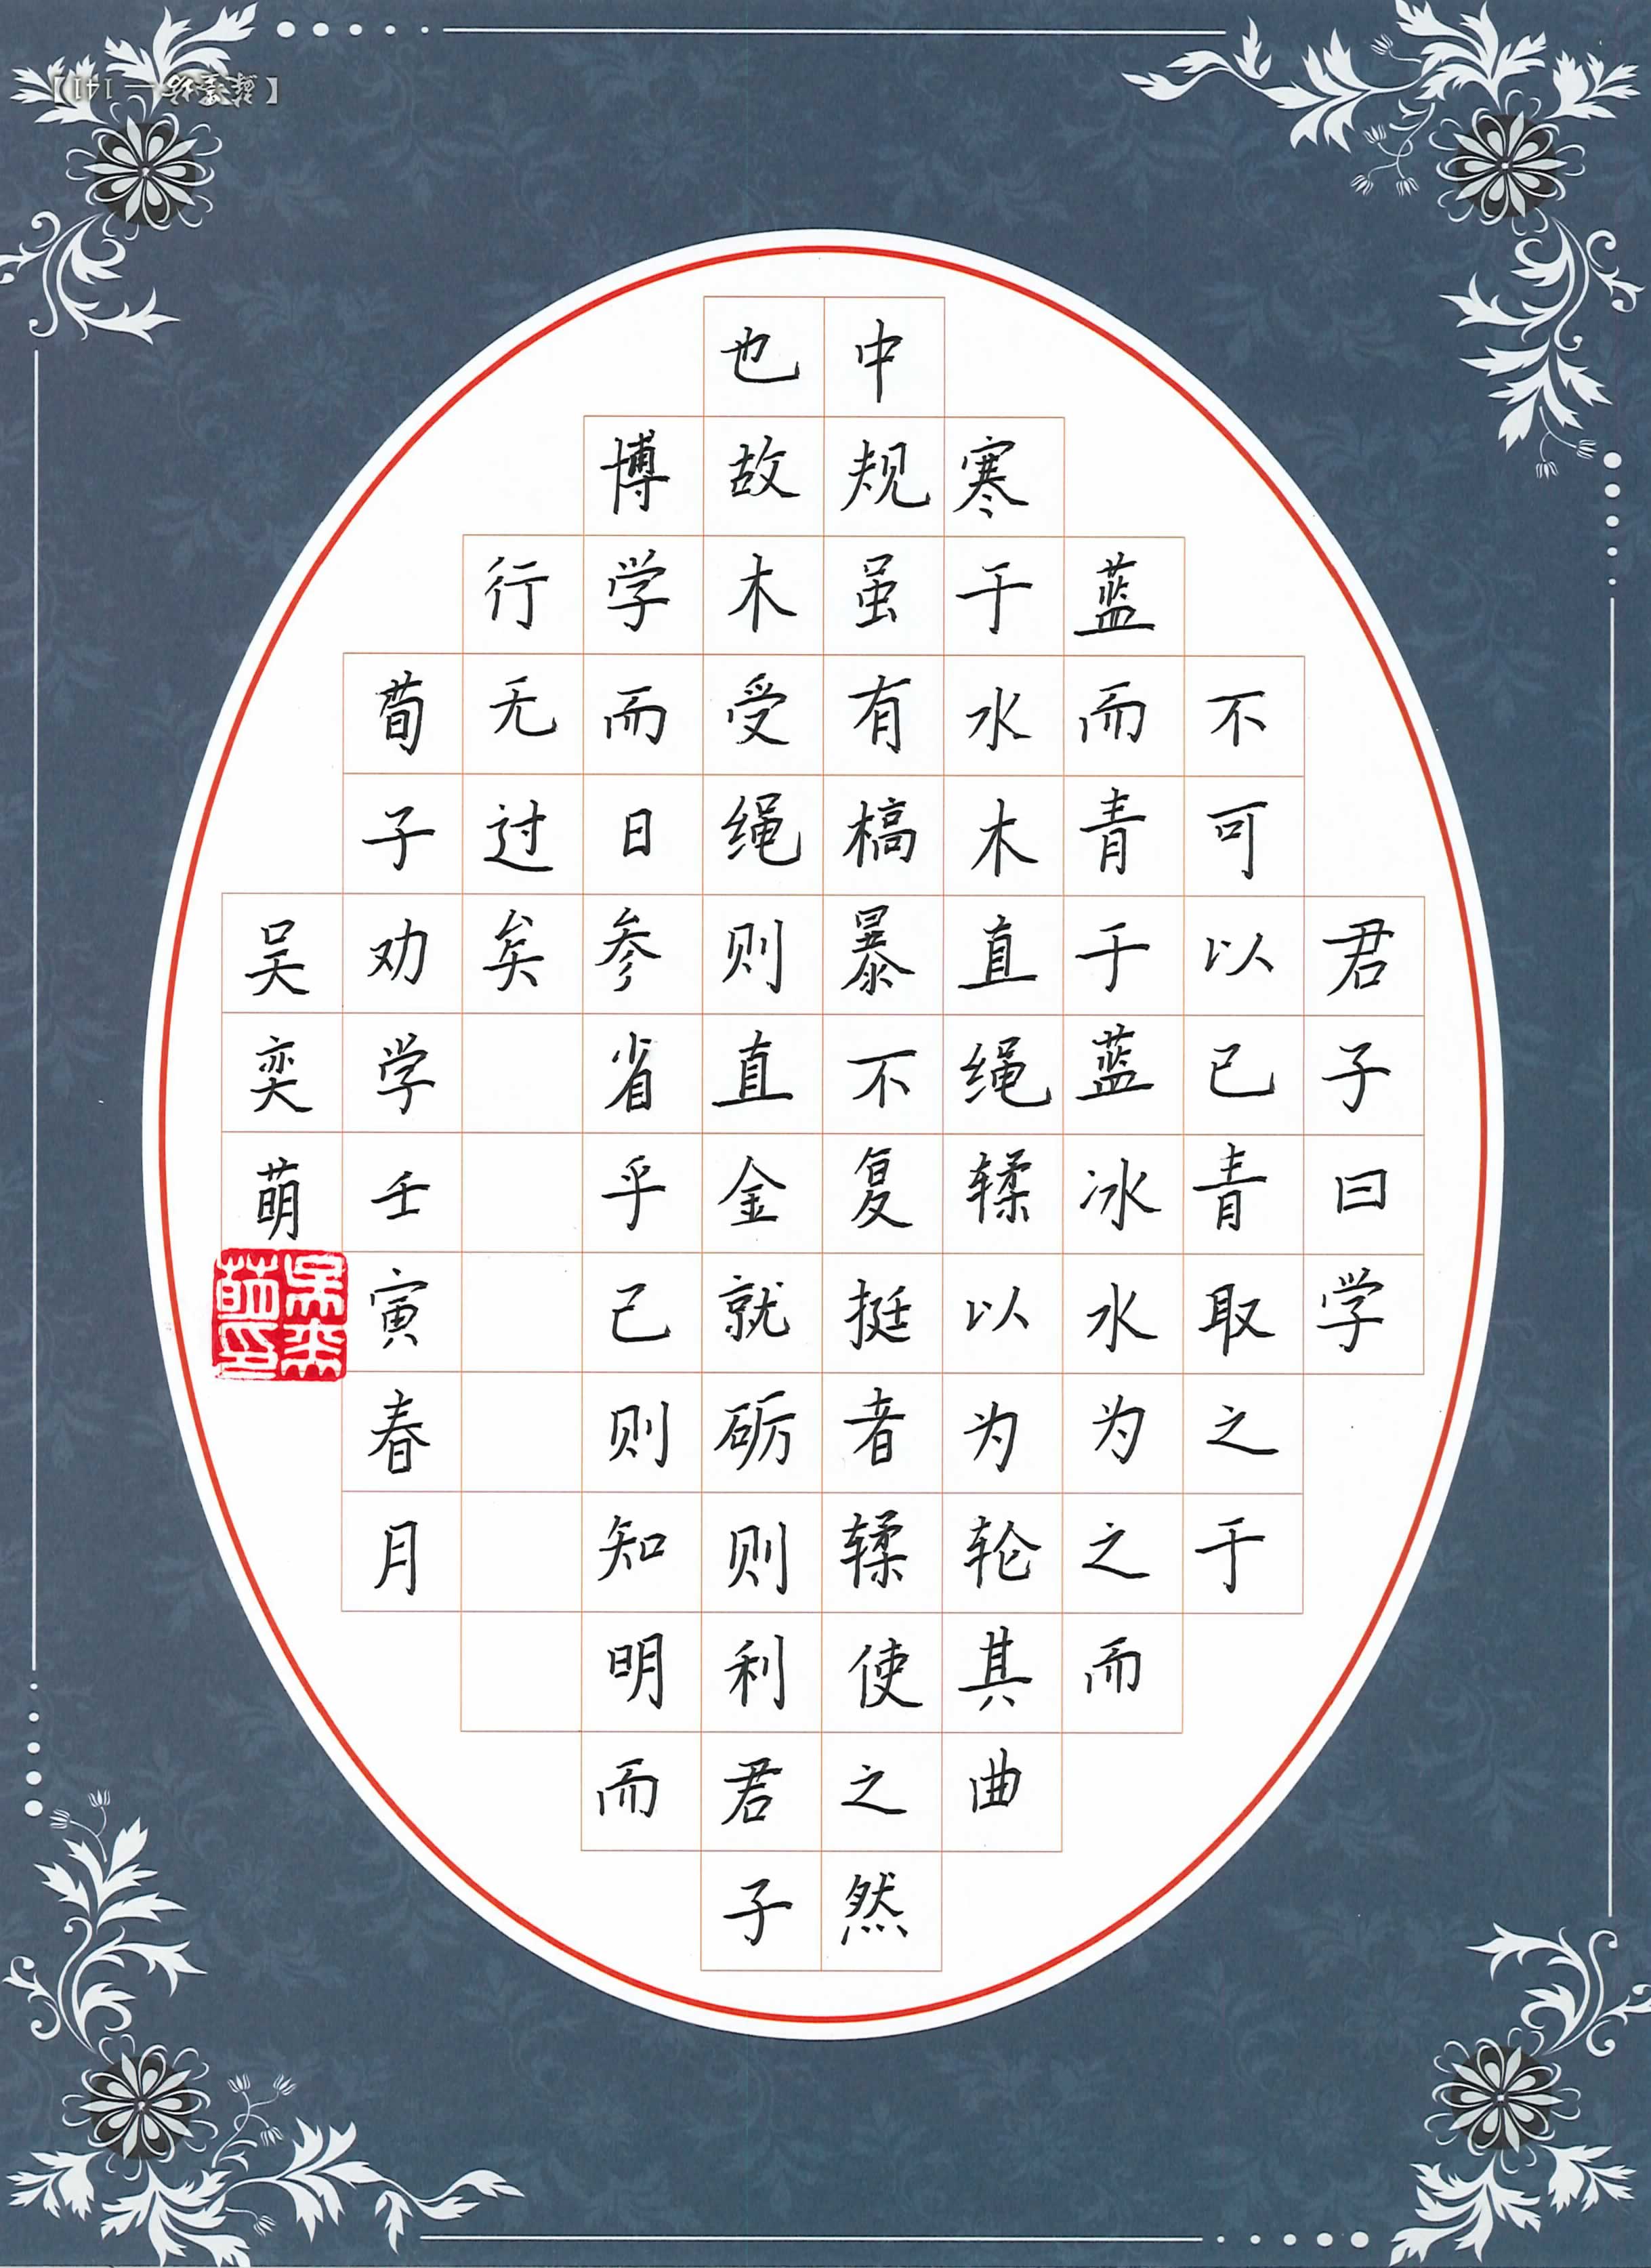 君子曰学
不可以已青取之于
蓝而青于蓝冰水为之而
寒于水木直绳輮以为轮其曲
中规虽有槁暴不复挺者輮使之然
也故木受绳则直金就砺则利君子
博学而日参省乎己则知明而
行无过矣
荀子劝学壬寅春月
吴奕萌
吴奕萌印